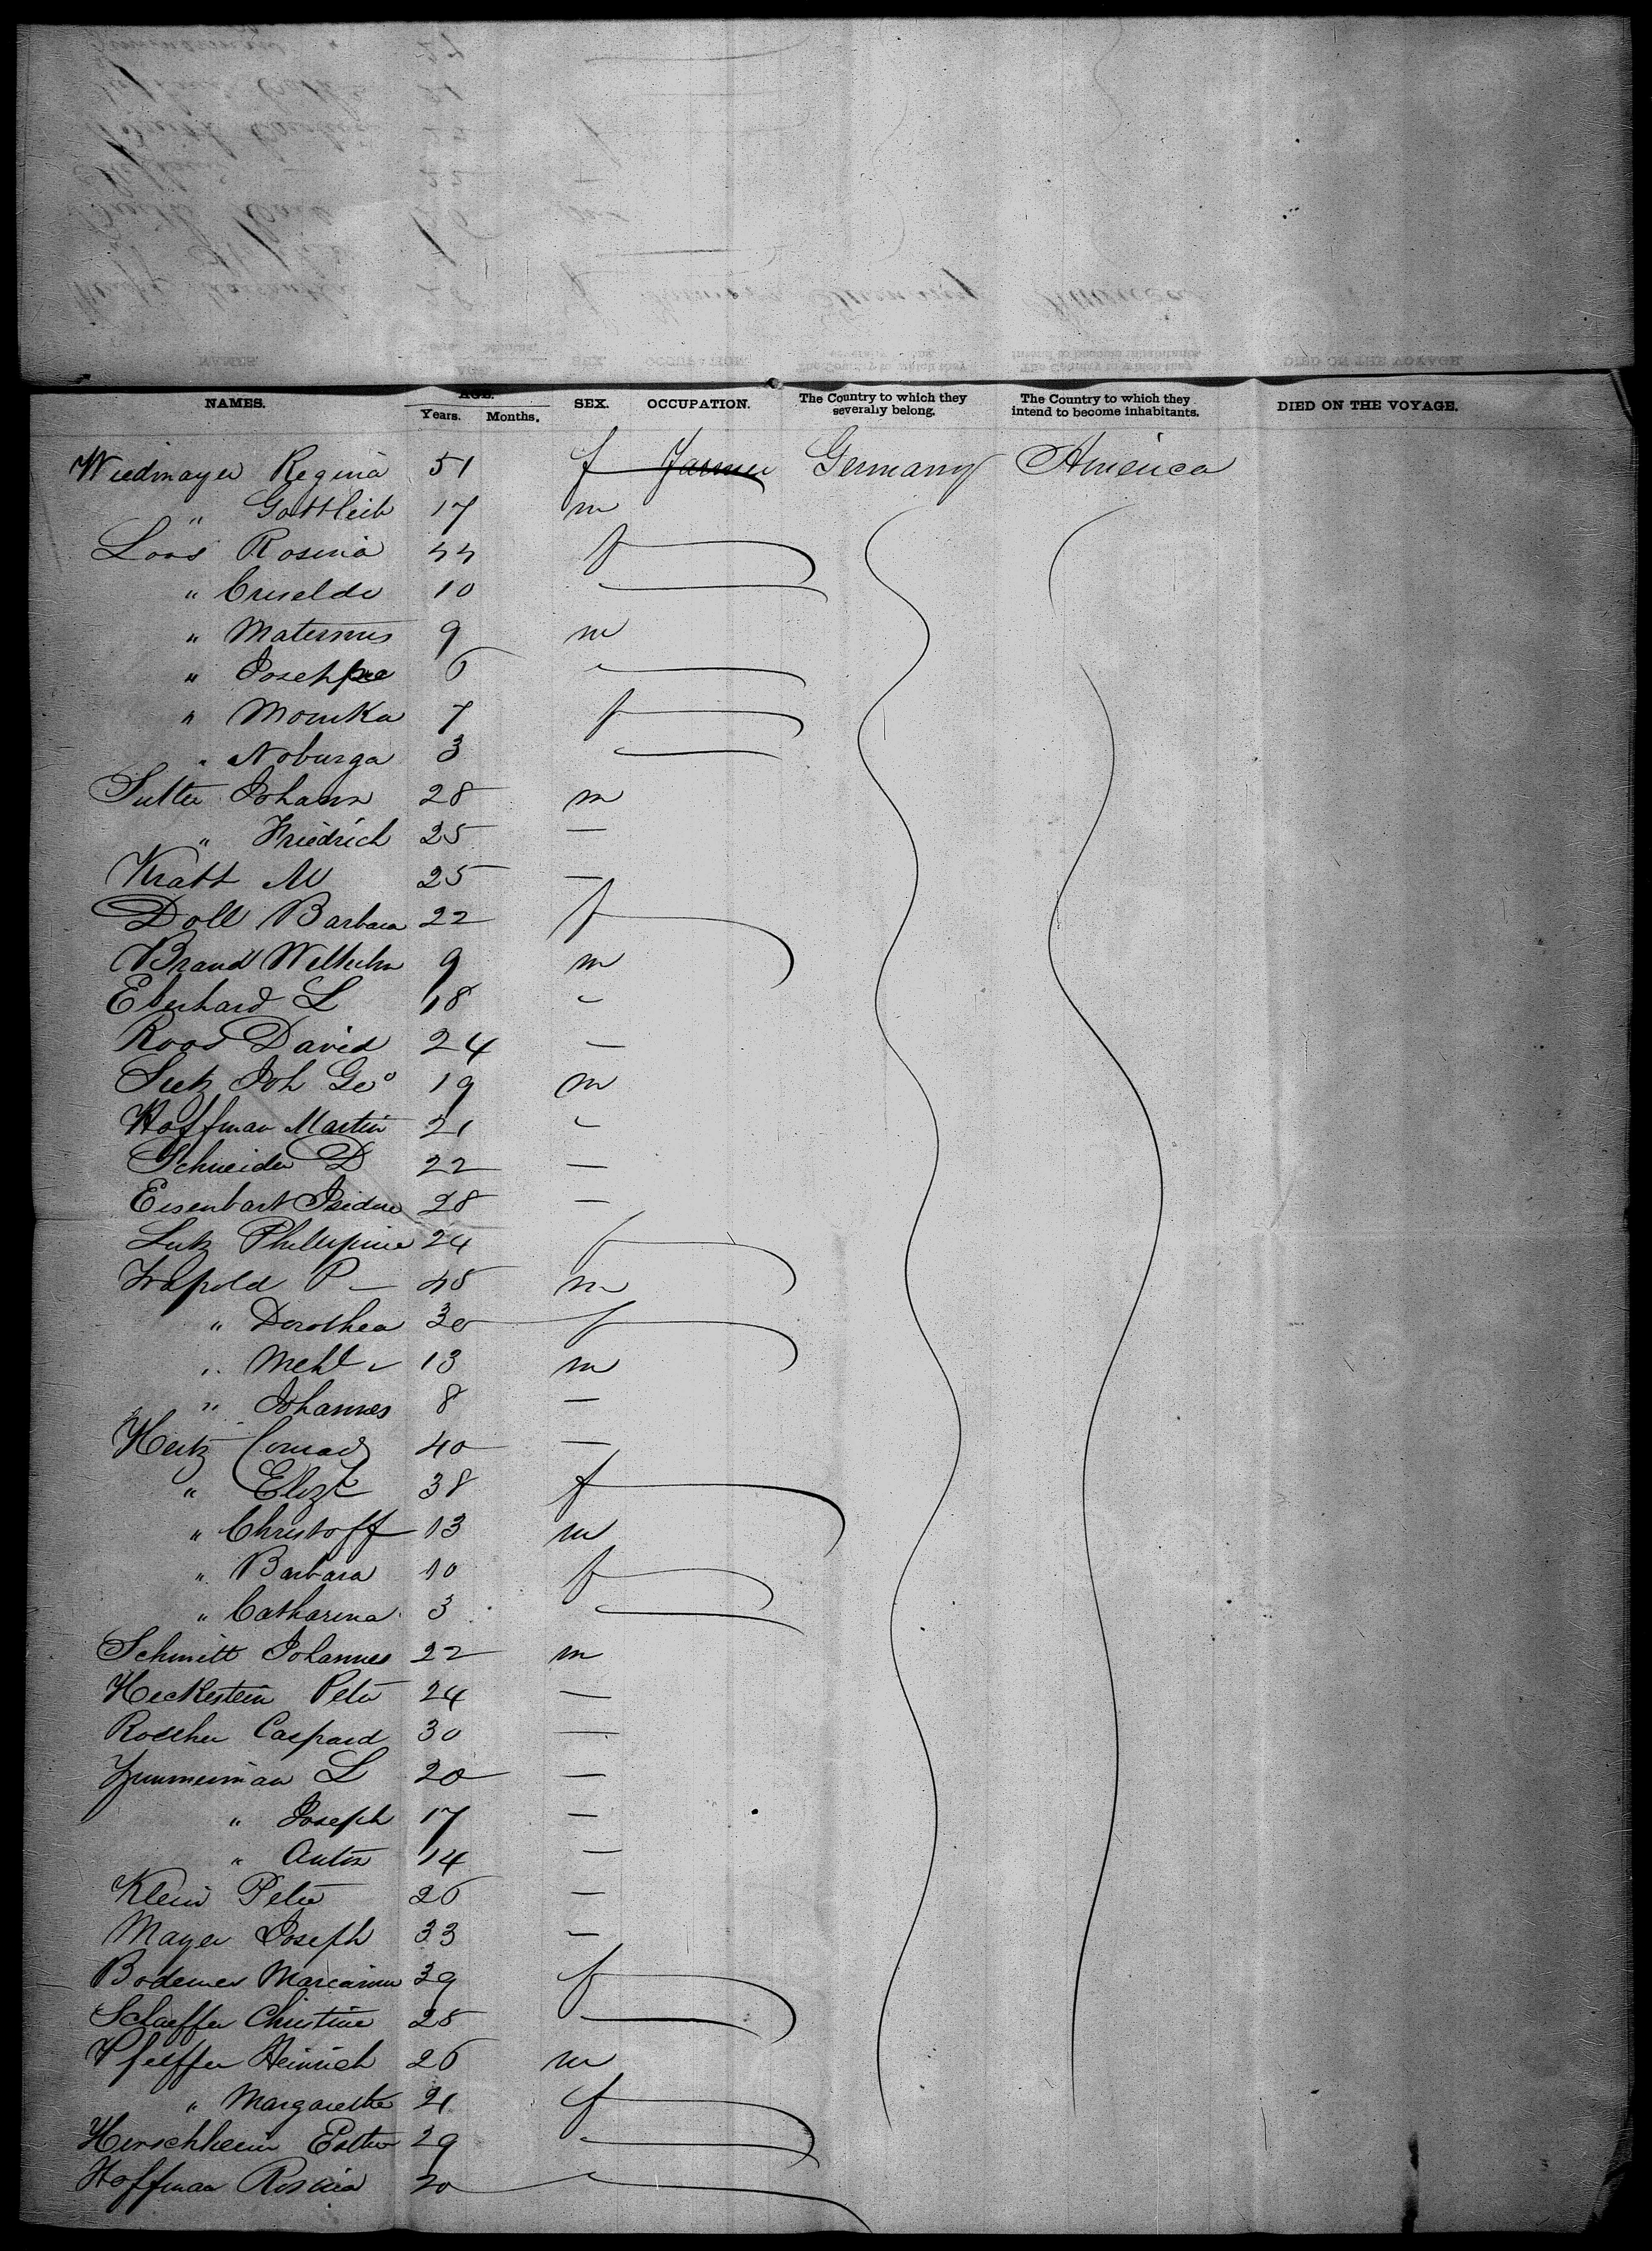 NAMES. AGE. Years. Months. SEX. OCCUPATION. The Country to which they severally belong. The Country to which they intend to become inhabitants. DIED ON THE VOYAGE.
Wiedmayer Regina 51 f Farmer Germany America
" Gottleib 17 m
Loos Rosina 44 f
" Criselde 10
" Maternus 9 m
" 6
" Monika 7 f
" Noburga 3
Sutter Johann 28 m
" Friedrich 25 —
Kratt M 25 —
Doll Barbara 22 f
Brand Wilhelm 9 m
Eberhard L 18 -
Roos David 24 —
Joh Geo 19 m
Hoffman Martin 21 -
Schneider D 22 —
Eisenbart Isidore 28 —
Lutz Phillipine 24 f
P — 45 m
" Dorothea 30 f
" 13 m
" Johannes 8 —
Conrad 40 —
" Elizt 38 f
" Christoff 13 m
" Barbara 10 f
" Catharina 3
Schmitt Johannes 22 m
Heckestein Peter 24 —
Caspard 30 —
Zimmerman L 20 —
" Joseph 17 —
" Anton 14 —
Klein Peter 26 —
Mayer Joseph 33 -
Bodemer 39 f
Schaeffer Christine 28
Pfeiffer Heinrich 26 m
" Margarethe 21 f
Esther 29
Hoffman Rosina 20